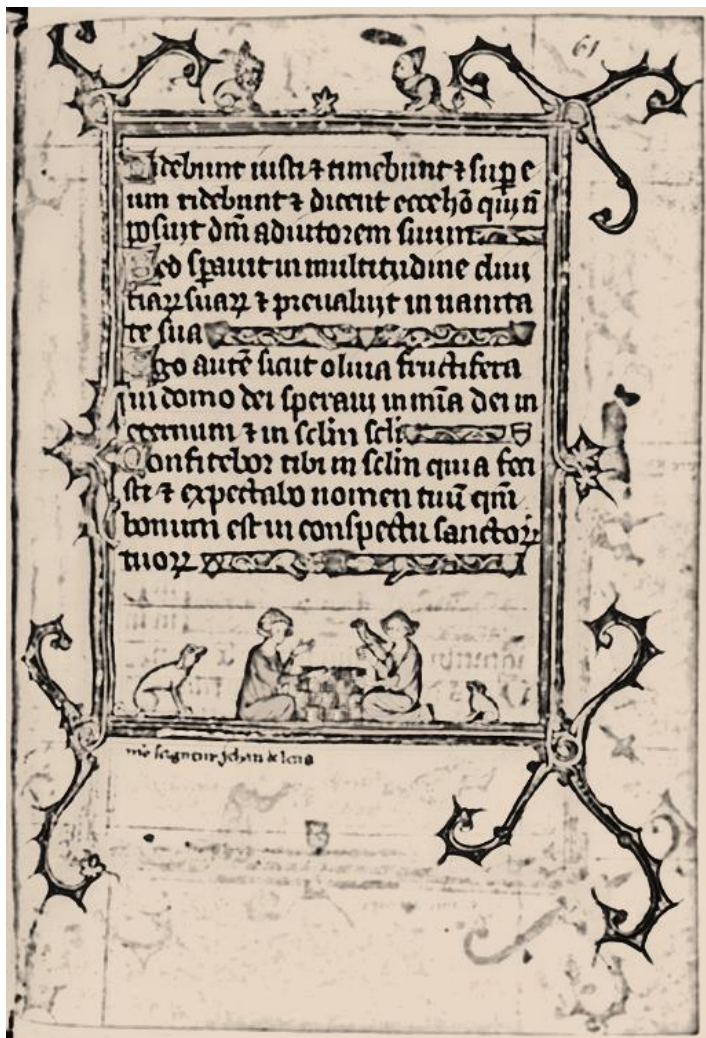 61
Videbunt iusti ⁊ timebunt ⁊ sup e
um ridebunt ⁊ dicent ecce hõ qui nõ
posuit dm̃ adiutorem suum
Sed spauit in multitudine diui
tiaꝝ suaꝝ ⁊ preualuit in uanita
te sua
Ego autẽ sicut oliua fructifera
in domo dei speraui in mĩa dei in
eternum ⁊ in sclm scli
Confitebor tibi in sclm quia feci
sti ⁊ expectabo nomen tuũ qm̃
bonum est in conspectu sanctoꝝ
tuoꝝ
seigneur Jehan de